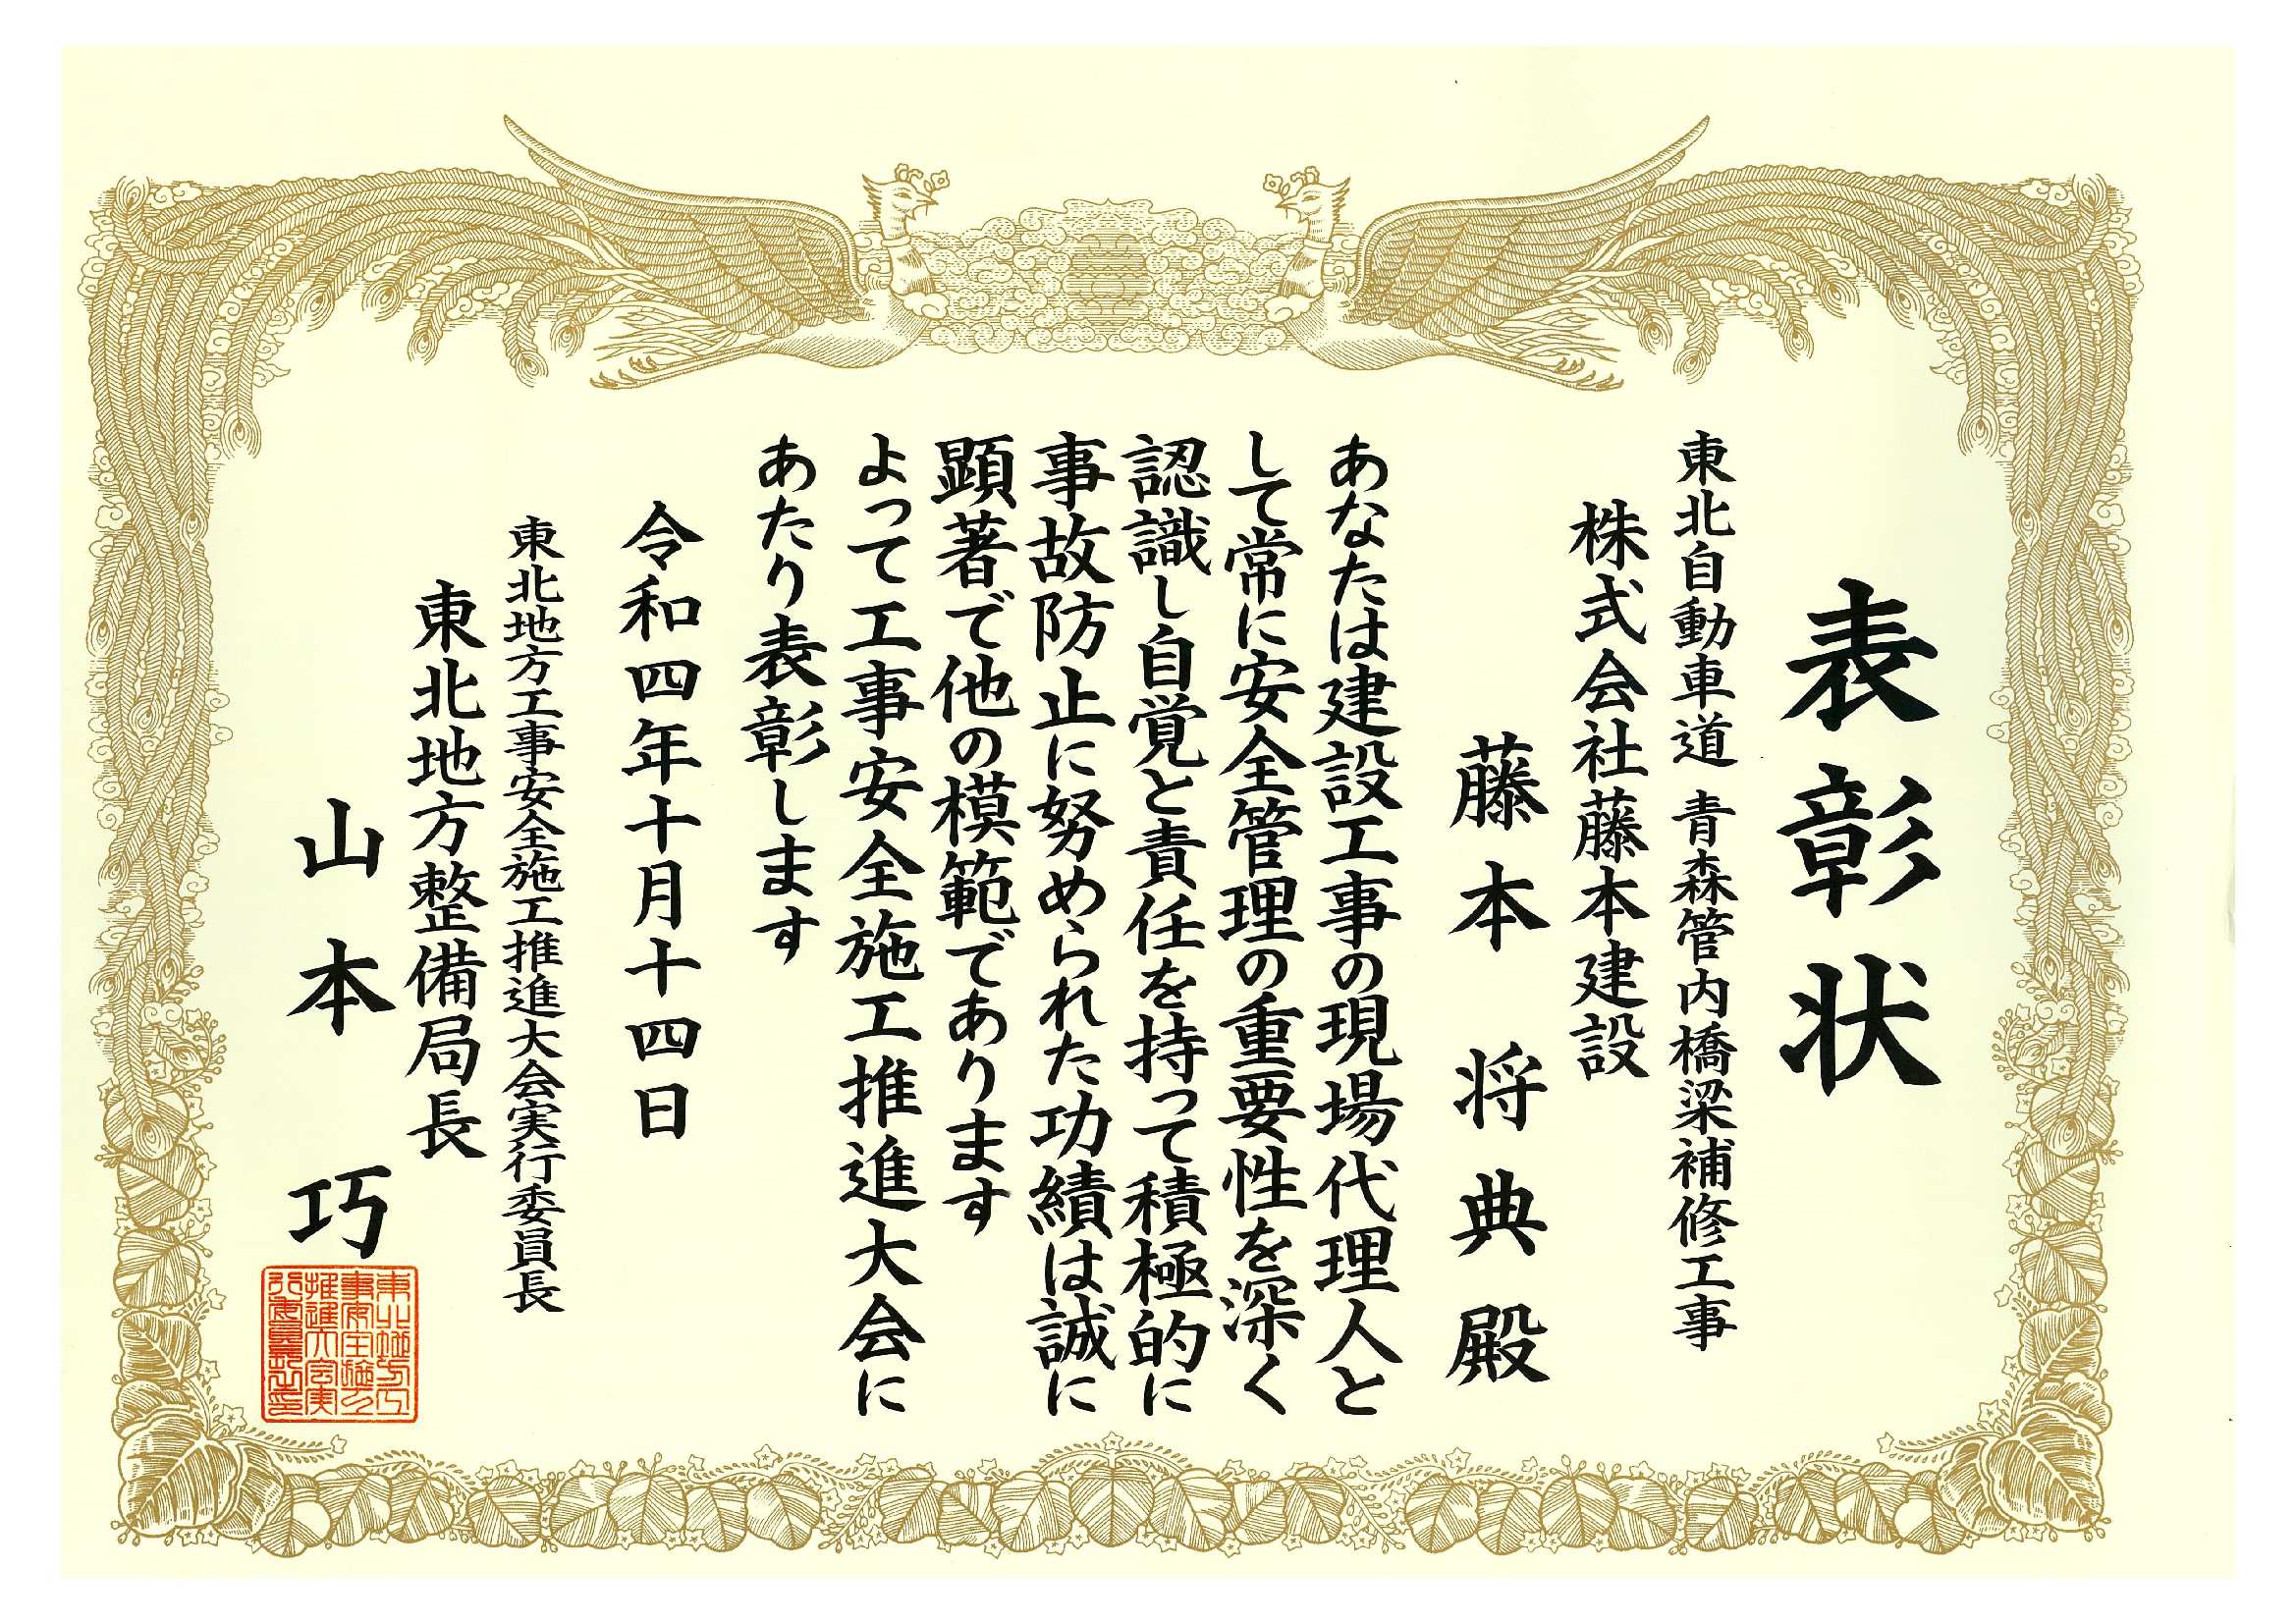 表彰状
東北自動車道 青森管内橋梁補修工事
株式会社藤本建設
藤本 将典 殿
あなたは建設工事の現場代理人と
して常に安全管理の重要性を深く
認識し自覚と責任を持って積極的に
事故防止に努められた功績は誠に
顕著で他の模範であります
よって工事安全施工推進大会に
あたり表彰します
令和四年十月十四日
東北地方工事安全施工推進大会実行委員長
東北地方整備局長
山本 巧
東北地方工
事安全施工
推進大会実
行委員長之印